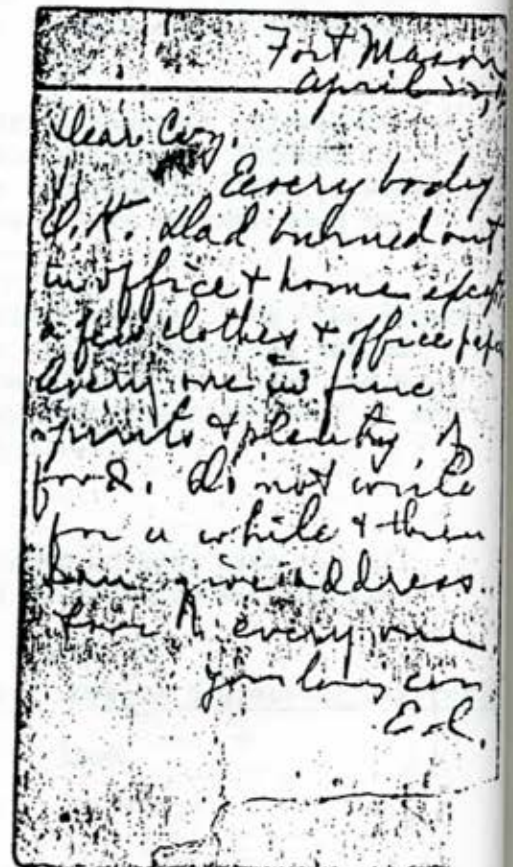 Fort Mason
April
Dear
Everybody
O.K. Dad burned out
in office & home except
a few clothes & office
Every one in fine
spirits & plenty of
food. Do not write
for a while & then
give address
every one
Your